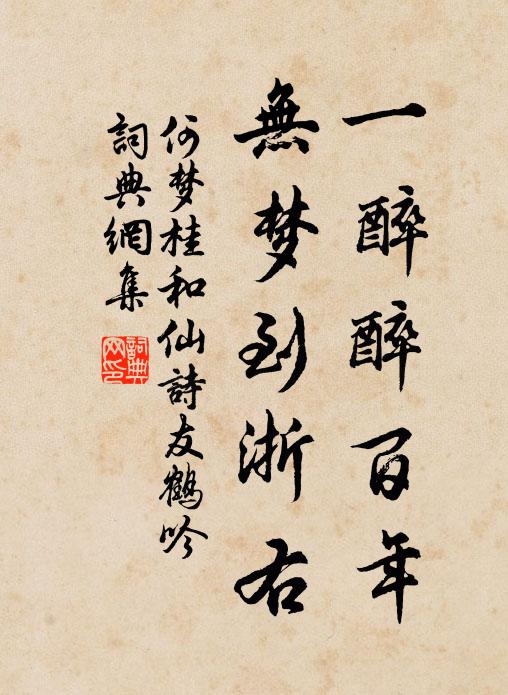 一醉醉百年
無梦到浙右
何梦桂和仙詩友鶴吟
詞典網集
詞典
网印